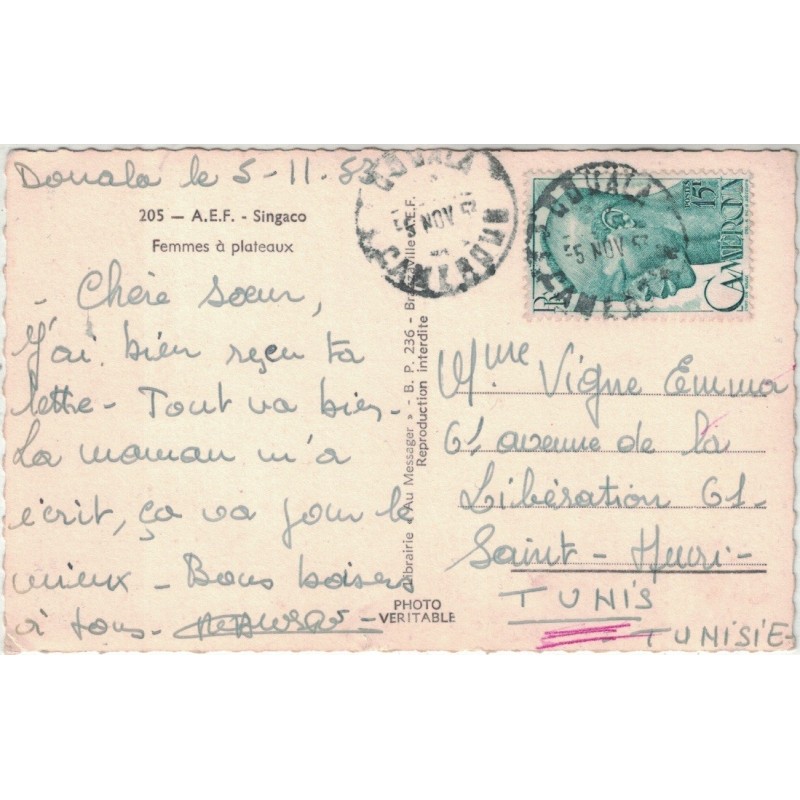 Douala le 5-11.53
205 — A.E.F. - Singaco
Femmes à plateaux
- Chère sœur,
J'ai bien reçu ta
lettre - Tout va bien -
La maman m'a
écrit, ça va pour le
mieux - Bons baisers
à tous -
Librairie « Au Messager » - B. P. 236 - Brazzaville A.E.F.
Reproduction interdite
PHOTO
VERITABLE
DOUALA
5 NOV
CAMEROUN
DOUALA
5 NOV
CAMEROUN
POSTES 15F
CAMEROUN
Mme Vigne Emma
61 avenue de la
Libération 61-
Saint-Henri-
TUNIS
TUNISIE-